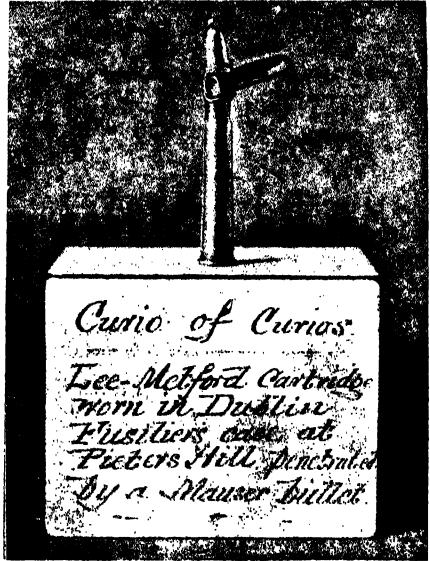 Curio of Curios
Lee-Metford Cartridge
worn in Dublin
Fusiliers at
Pieters Hill penetrated
by a Mauser bullet